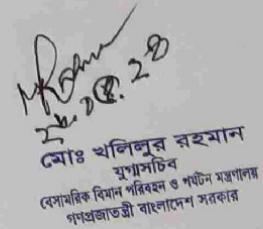 মোঃ খলিলুর রহমান
যুগ্মসচিব
বেসামরিক বিমান পরিবহন ও পর্যটন মন্ত্রণালয়
গণপ্রজাতন্ত্রী বাংলাদেশ সরকার